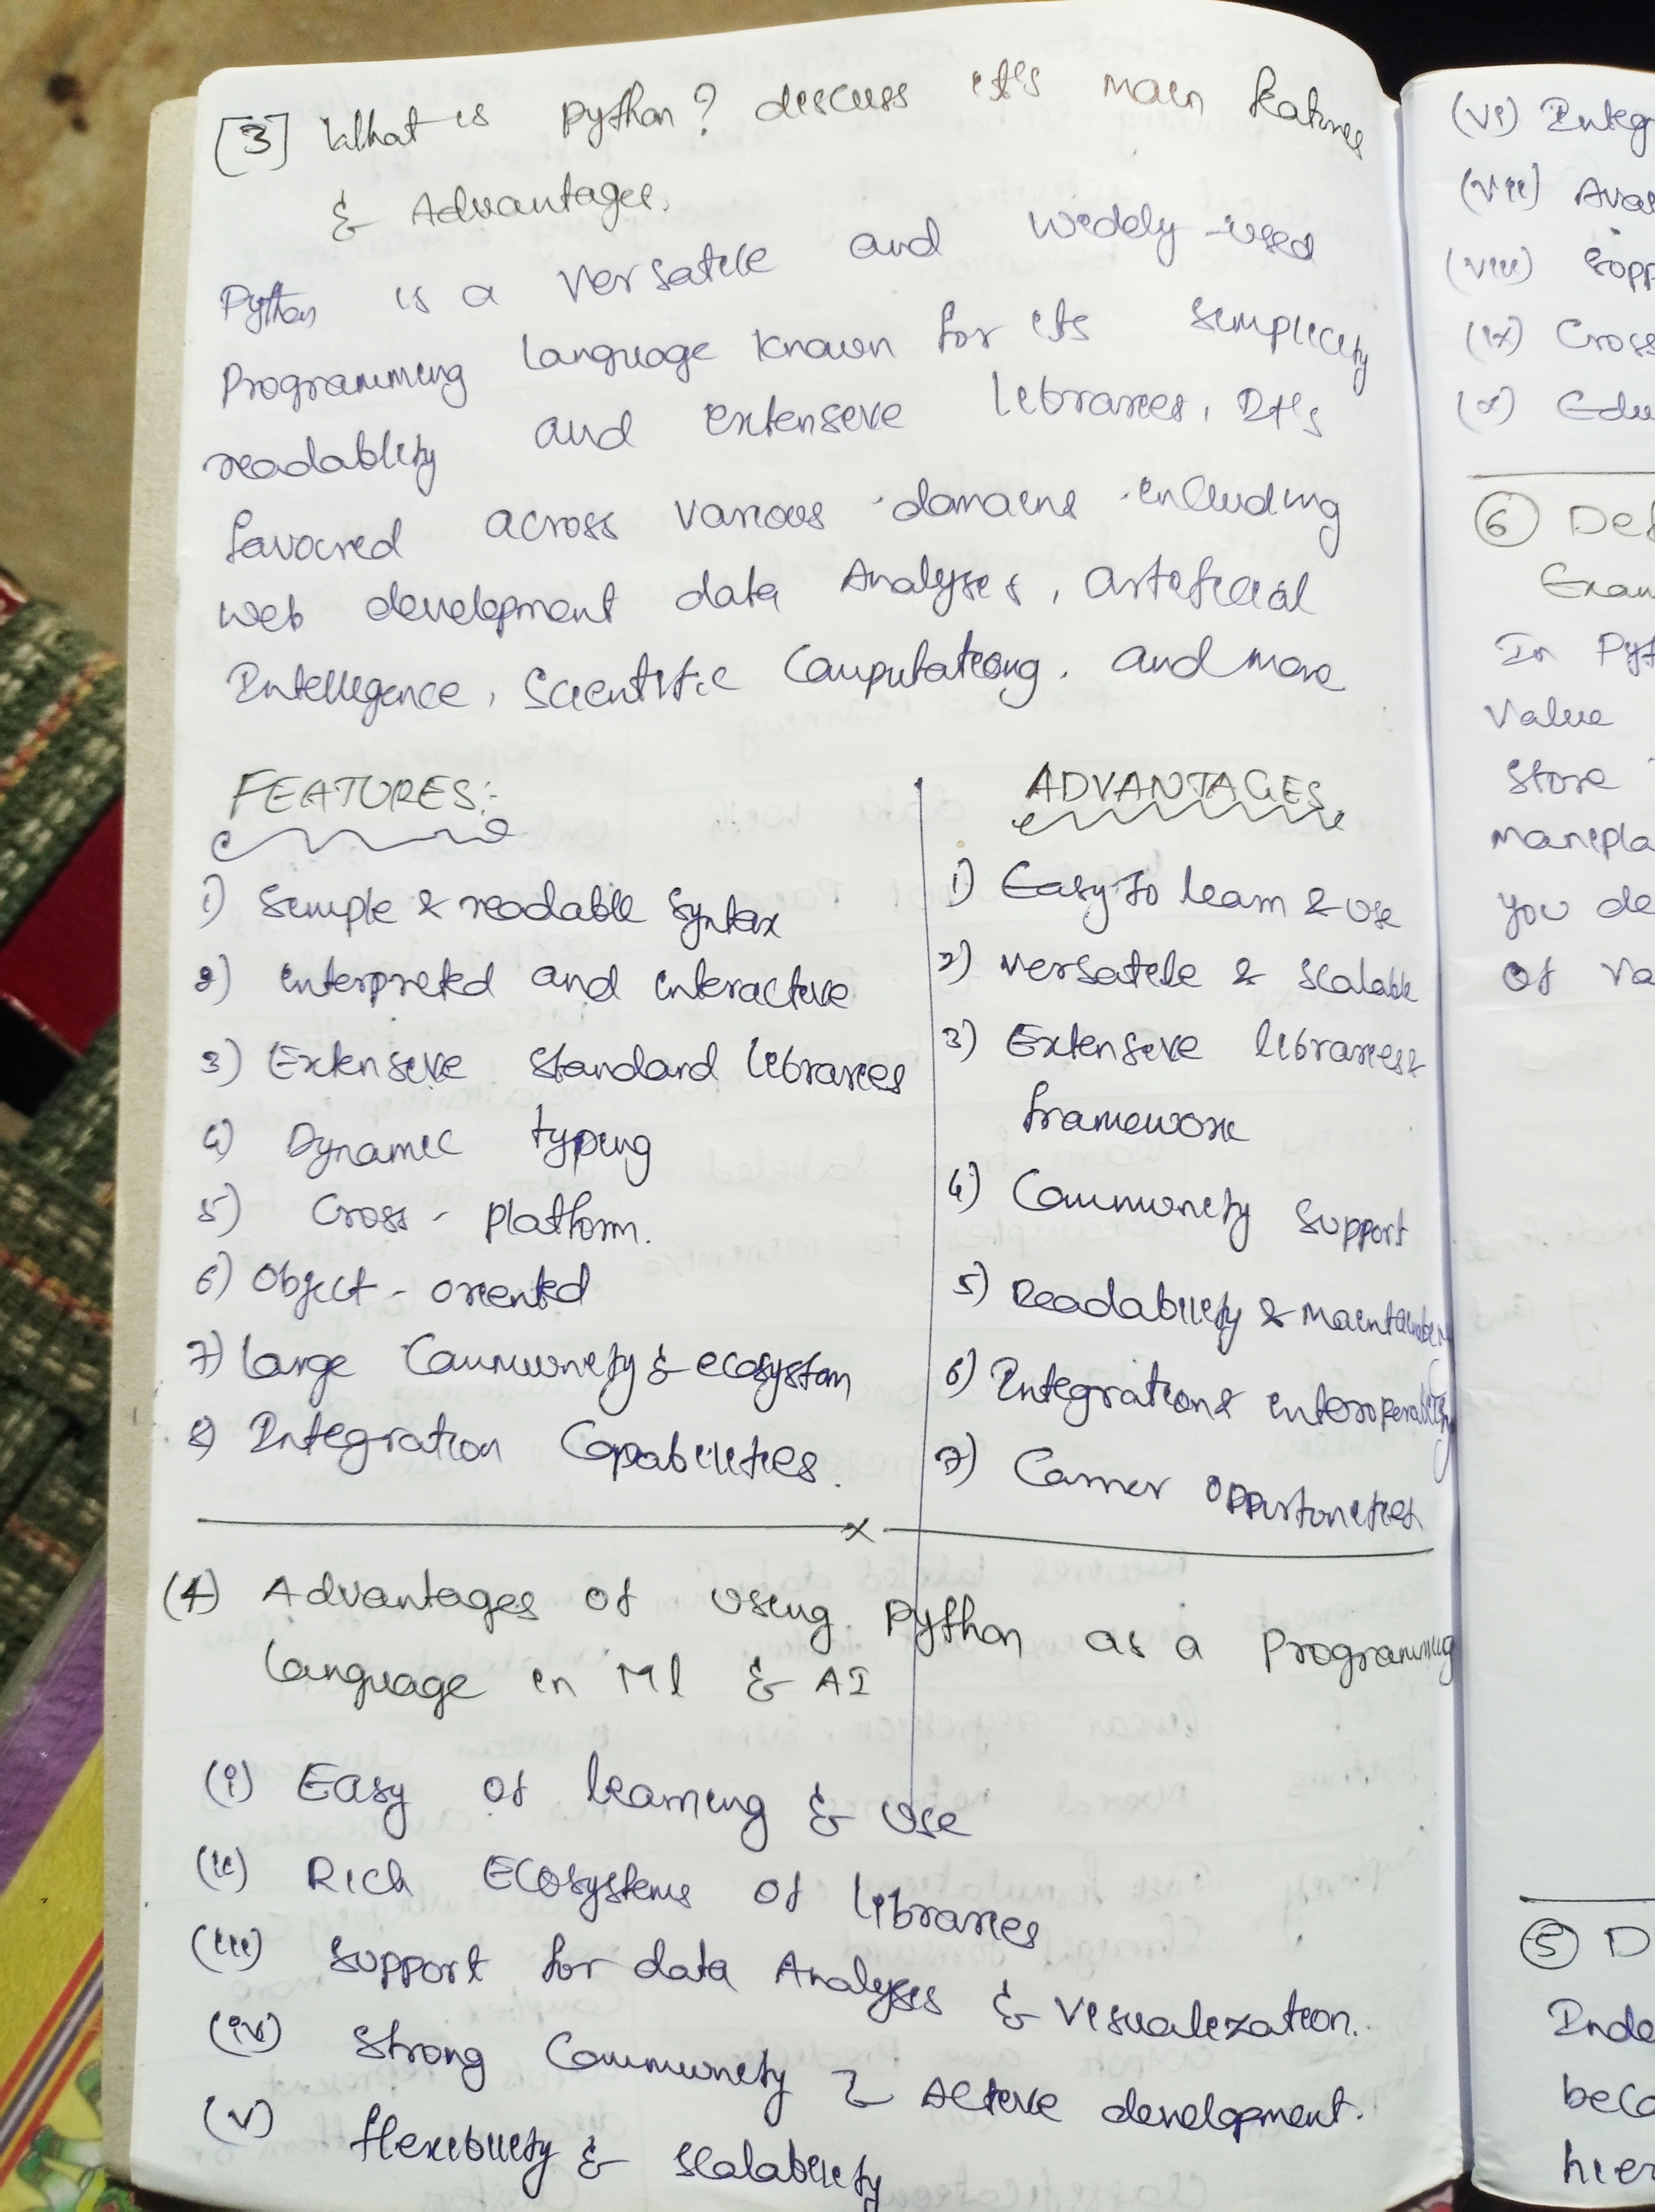 [3] What is Python? discuss it's main features
& Advantages.
Python is a versatile and widely-used
Programming language known for its simplicity
readablity and extensive libraries, It's
favoured across various domains including
web development data Analyses, artificial
Intelligence, Scientific Computationg. and more
FEATURES:-
1) Simple & readable Syntax
2) interpreted and interactive
3) Extensive Standard libraries
4) Dynamic typing
5) Cross-platform.
6) Object-oriented
7) Large Community & ecosystem
8) Integration Capabilities.
ADVANTAGES
1) Easy to learn & use
2) versatile & scalable
3) Extensive libraries &
framework
4) Community support
5) Readability &
6) Integration & interoperability
7) Carrier opportunities
x
(4) Advantages of using Python as a Programming
language in Ml & AI
(i) Easy of learning & use
(ii) Rich Ecosystems of libraries
(iii) Support for data Analyses & Visualization.
(iv) Strong Community & Active development.
(v) flexibility & scalability
(vi) Integ
(vii) Avai
(viii) Supp
(ix) Cross
(x) Edu
6 Def
Exam
In Pyt
Value
Store
Manipla
you de
of va
5 D
Inde
beca
hier